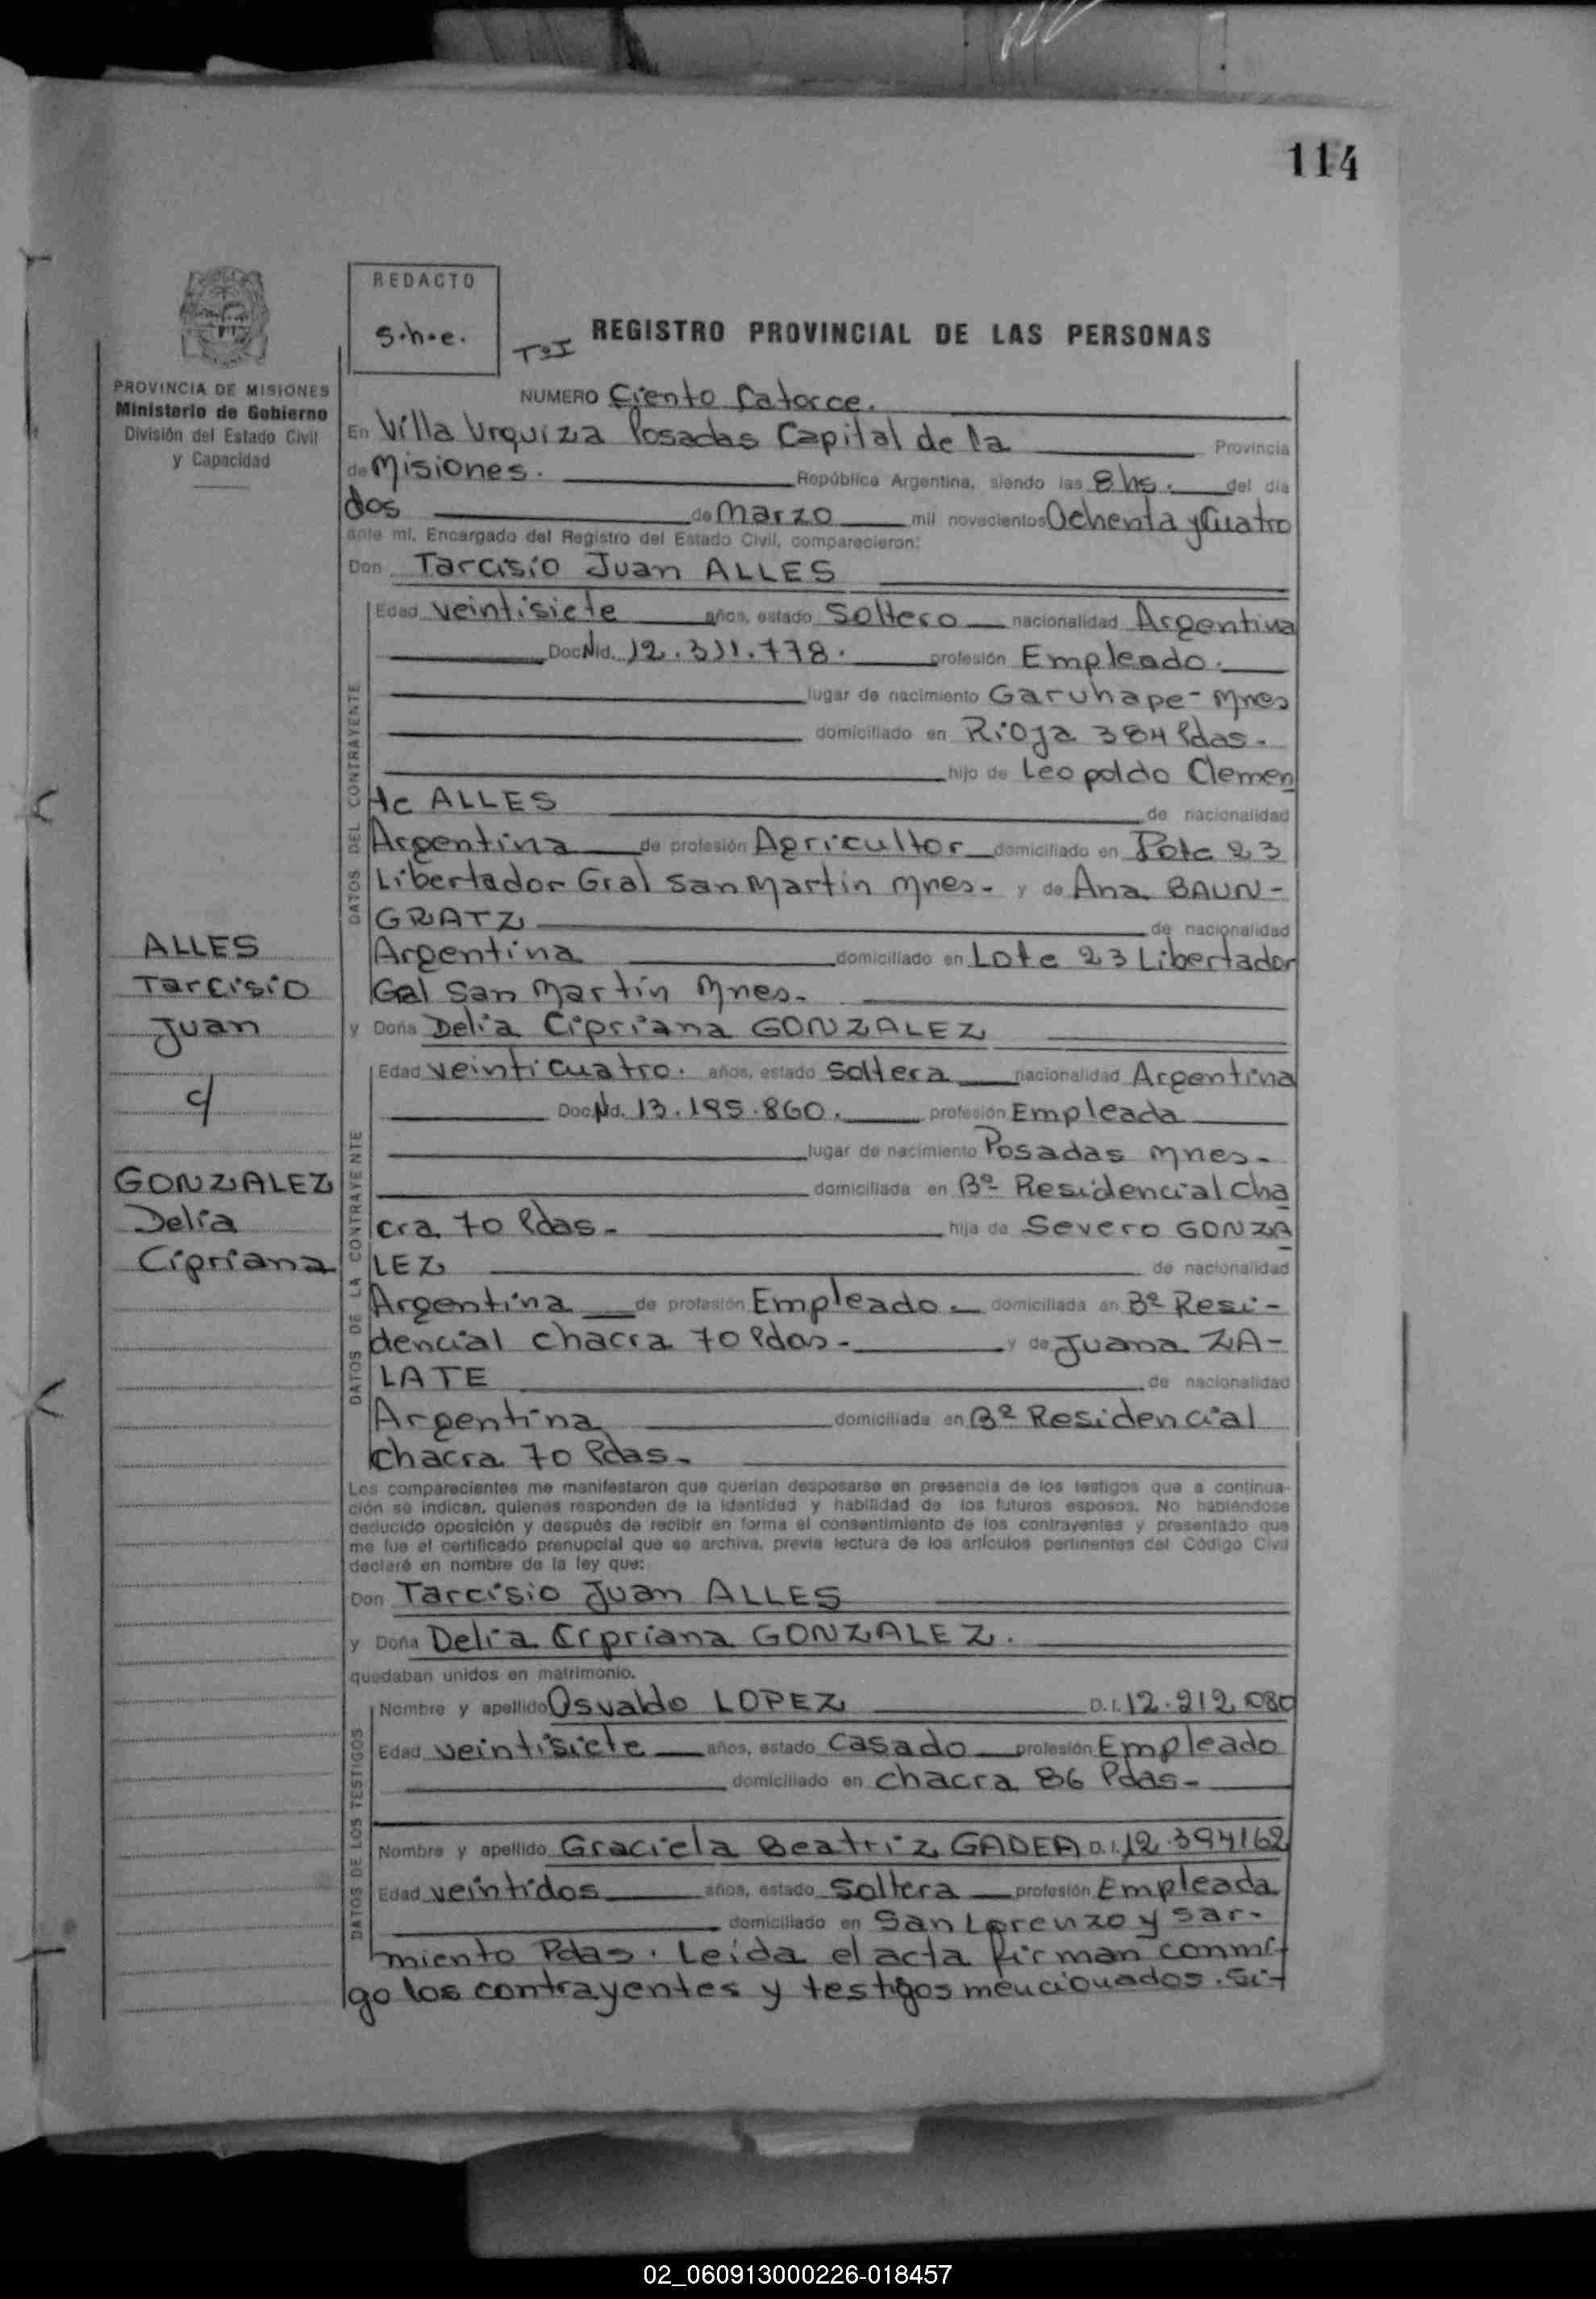 114
REDACTO
s.h.e.
TºI
REGISTRO PROVINCIAL DE LAS PERSONAS
PROVINCIA DE MISIONES
Ministerio de Gobierno
División del Estado Civil
y Capacidad
NUMERO Ciento Catorce.
En Villa Urquiza Posadas Capital de la Provincia
de Misiones. República Argentina, siendo las 8 hs. del día
dos de Marzo mil novecientos Ochenta y Cuatro
ante mí, Encargado del Registro del Estado Civil, comparecieron:
Don Tarcisio Juan ALLES
DATOS DEL CONTRAYENTE
Edad veintisiete años, estado Soltero nacionalidad Argentina
Doc. Nid. 12.311.778. profesión Empleado.
lugar de nacimiento Garuhape - Mnes
domiciliado en Rioja 384 Pdas.
hijo de Leopoldo Clemen
te ALLES de nacionalidad
Argentina de profesión Agricultor domiciliado en Lote 23
Libertador Gral San Martin Mnes. y de Ana BAUN-
GRATZ de nacionalidad
Argentina domiciliado en Lote 23 Libertador
Gal San Martin Mnes.
y Doña Delia Cipriana GONZALEZ
DATOS DE LA CONTRAYENTE
Edad veinticuatro. años, estado Soltera nacionalidad Argentina
Doc. Nd. 13.195.860. profesión Empleada
lugar de nacimiento Posadas Mnes.
domiciliada en Bº Residencial Cha
cra 70 Pdas. hija de Severo GONZA
LEZ de nacionalidad
Argentina de profesión Empleado. domiciliada en Bº Resi-
dencial chacra 70 Pdas. y de Juana ZA-
LATE de nacionalidad
Argentina domiciliada en Bº Residencial
chacra 70 Pdas.
ALLES
Tarcisio
Juan
c/
GONZALEZ
Delia
Cipriana
Los comparecientes me manifestaron que querían desposarse en presencia de los testigos que a continua-
ción se indican, quienes responden de la identidad y habilidad de los futuros esposos. No habiéndose
deducido oposición y después de recibir en forma el consentimiento de los contrayentes y presentado que
me fue el certificado prenupcial que se archiva, previa lectura de los artículos pertinentes del Código Civil
declaré en nombre de la ley que:
Don Tarcisio Juan ALLES
y Doña Delia Cipriana GONZALEZ.
quedaban unidos en matrimonio.
DATOS DE LOS TESTIGOS
Nombre y apellido Osvaldo LOPEZ D.I. 12.212.080
Edad veintisiete años, estado Casado profesión Empleado
domiciliado en chacra 86 Pdas.
Nombre y apellido Graciela Beatriz GADEA D.I. 12.394162
Edad veintidos años, estado Soltera profesión Empleada
domiciliado en San Lorenzo y Sar-
miento Pdas. Leida el acta firman conmi-
go los contrayentes y testigos mencionados. Si-
02_060913000226-018457